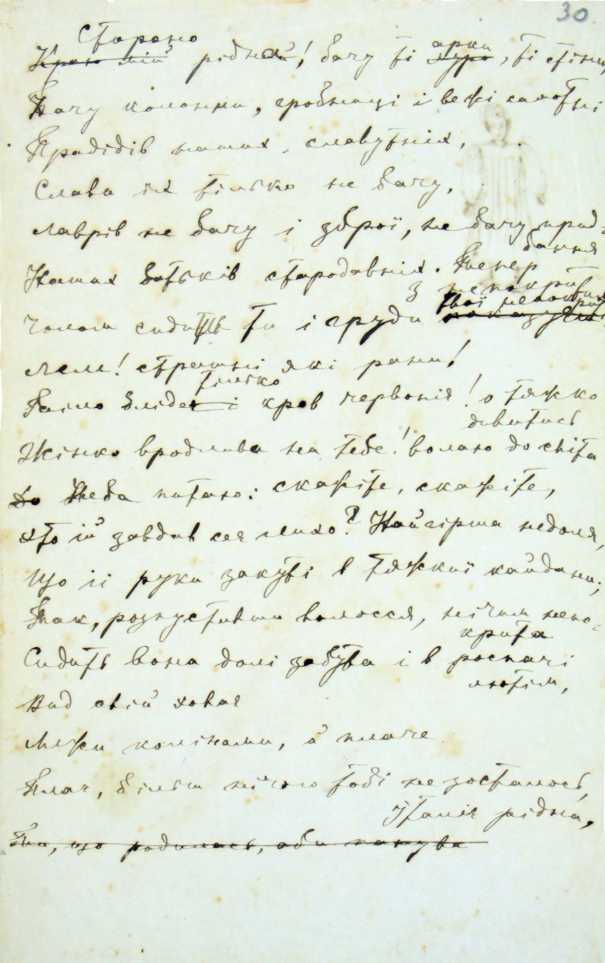 30.
Стороно
Краю мій рідная! бачу ті арки, ті стіни,
Бачу колонни, гробниці і вежі самотні
Прадідів наших, славутніх,
Слави їх тільки не бачу,
Лаврів не бачу і зброї, не бачу прид-
бання
Наших батьків стародавніх. Тепер
з непокритим
Чолом сидиш ти і груди твої
Леле! страшні які рани!
тілько
Тіло бліде і кров червонія! о тяжко
дивитись
Жінко вродлива на тебе! волаю до світа
До Неба питаю: скажіте, скажіте,
Хто їй завдав сее лихо? Найгірша недоля,
Що її руки закуті в тяжкиї кайдани;
Так, розпустивши волосся, нічим непо-
крита
Сидить вона долі забута і в роспачі
лютім,
Вид свій ховає
Межи колінами, й плаче
Плач, більш нічого тобі не зосталось,
Італіє рідна,
Ти, що родилась, аби панува